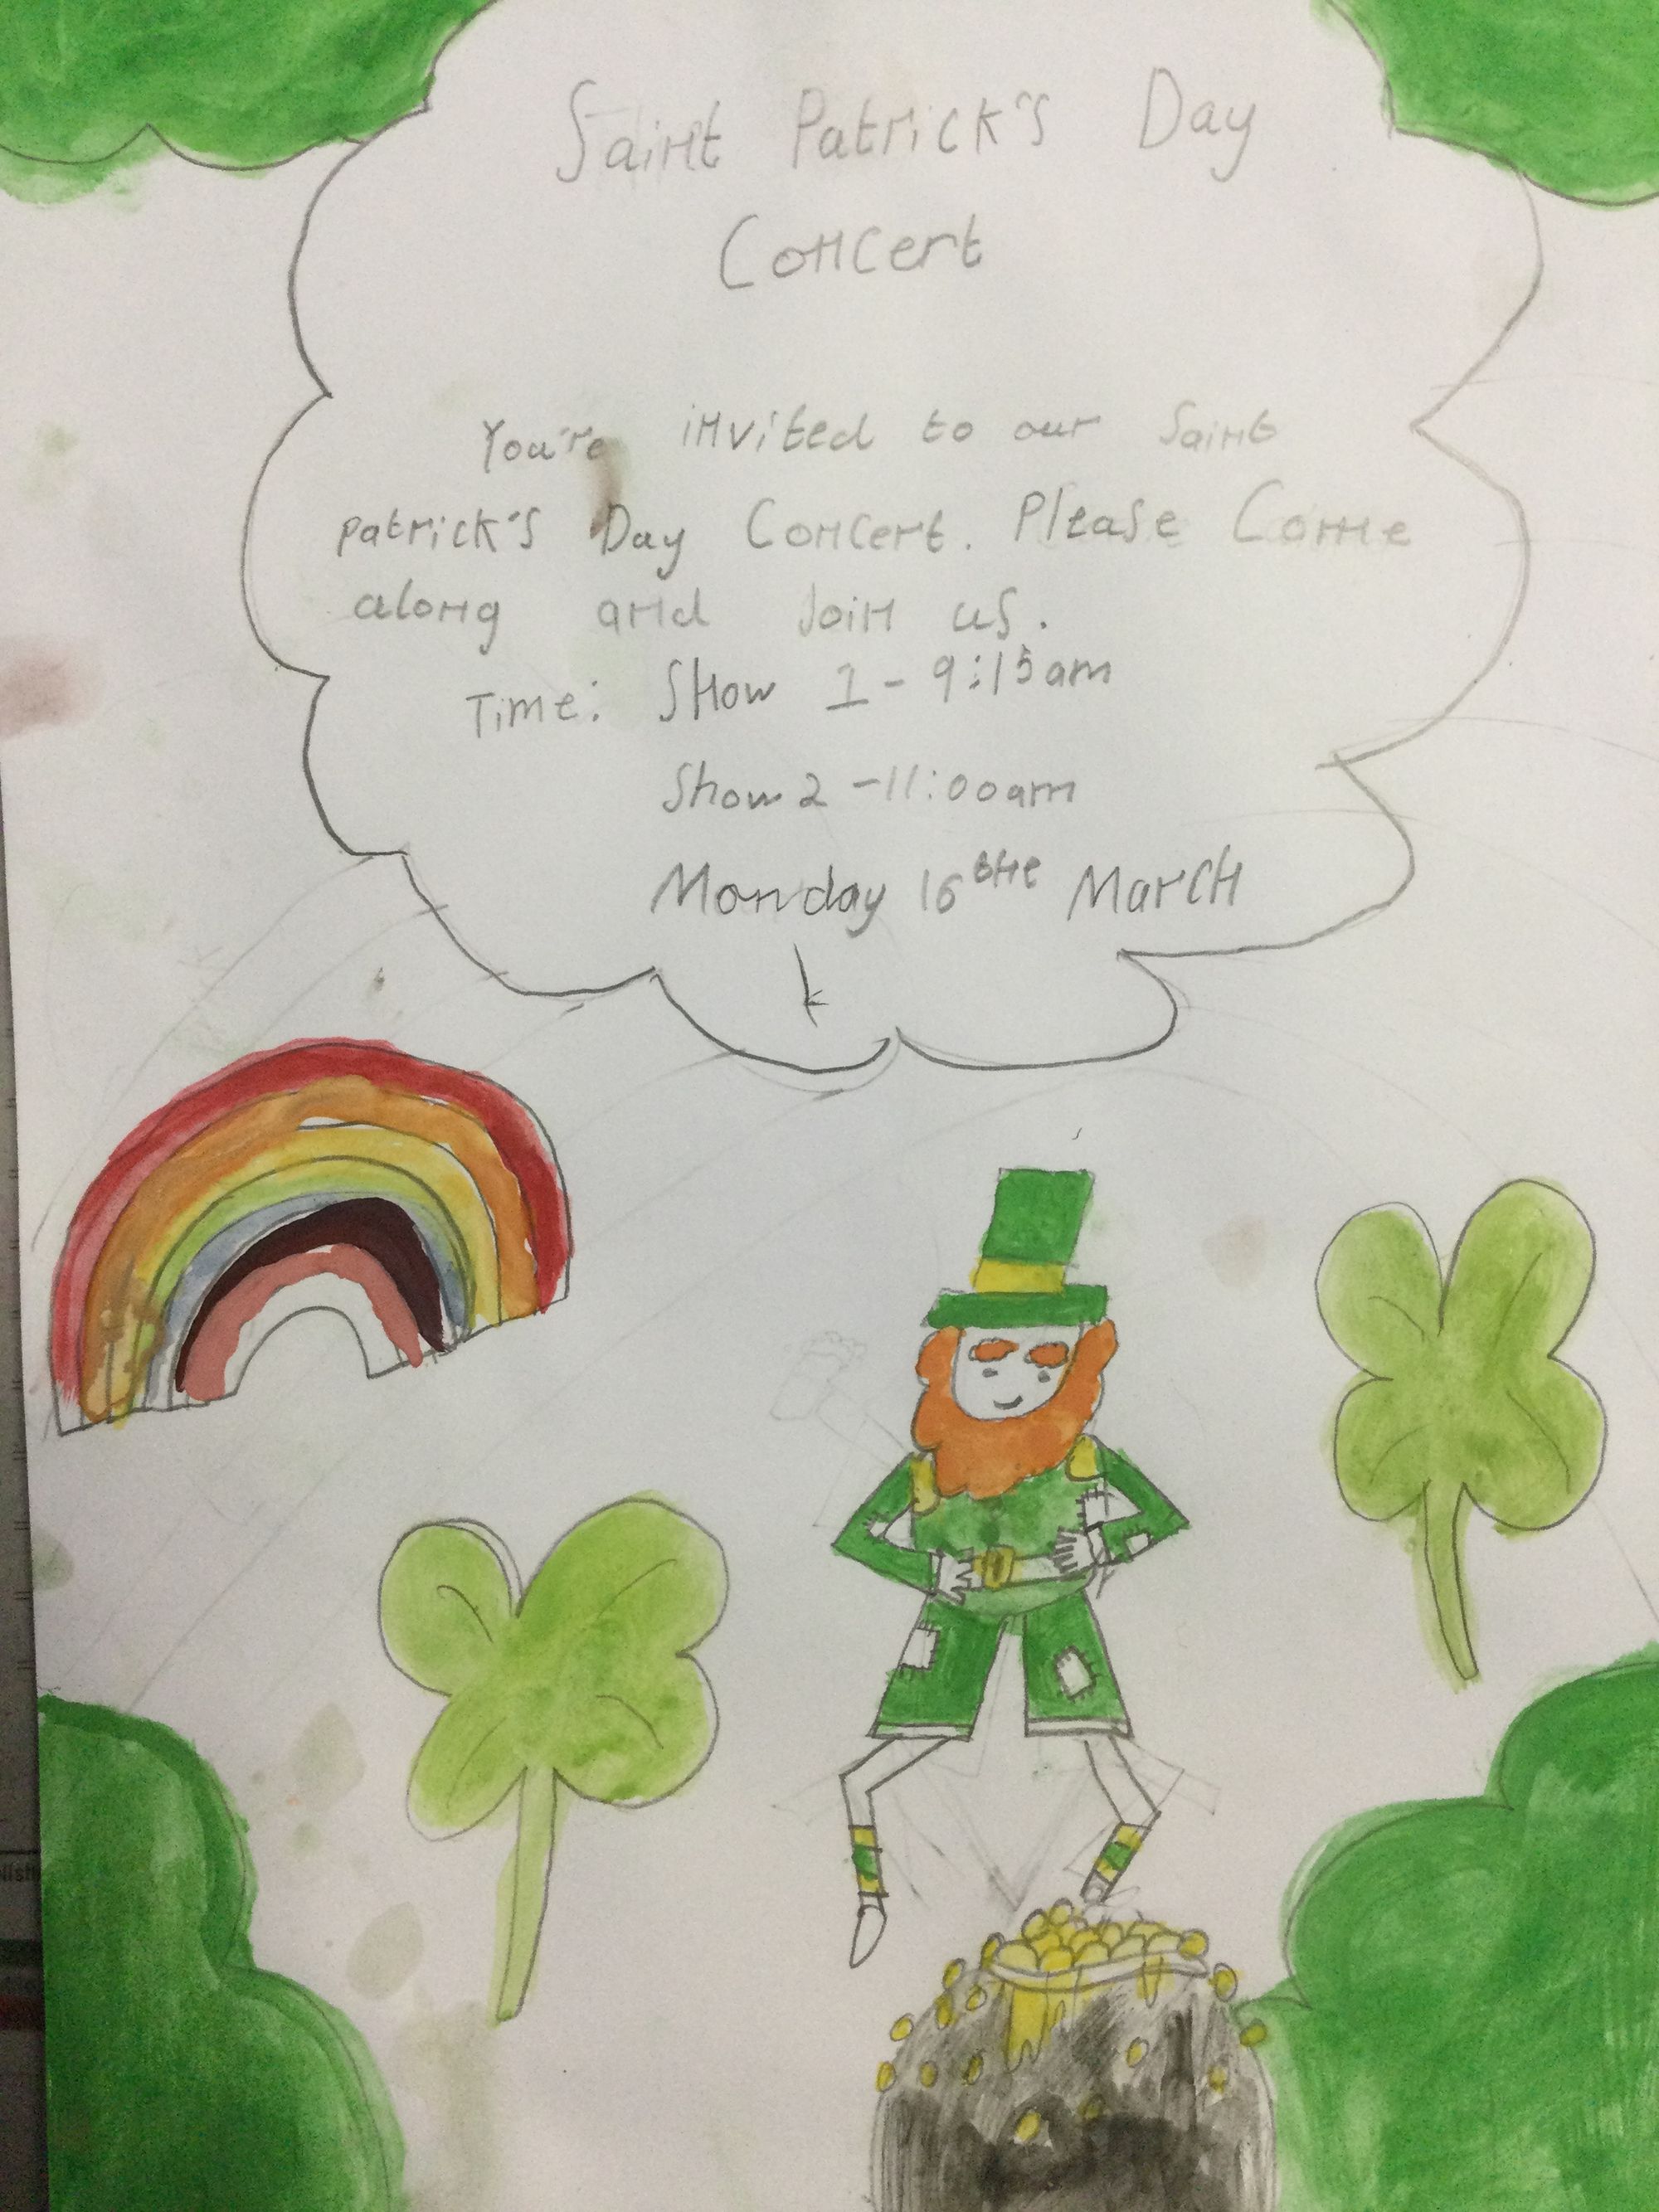 Saint Patrick's Day
Concert
You're invited to our Saint
patrick's Day Concert. Please Come
along and Join us.
Time: Show 1 - 9:15am
Show 2 - 11:00am
Monday 16the March